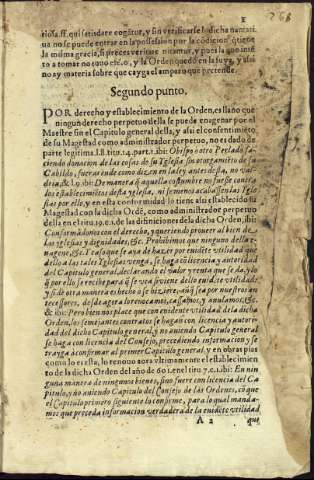 riosa. ff. qui satisdare cogãtur, y sin verificarse la dicha narrati
ua no se puede entrar en la possession por la cõdicion
la misma gracia, si preces veritate nitantur, y pues la que
a tomar no tuuo efeto, y la Orden quedò en la suya, y assi
no ay materia sobre que cayga el amparo que pretende.
Segundo punto.
POR derecho y establecimiento de la Orden, es llano que
ningun derecho perpetuo della se puede enagenar por el
Maestre sin el Capitulo general della, y assi el consentimiẽto
de su Magestad como administrador perpetuo, no es dado de
parte legitima. l. 8. titu. 14. part. 1. ibi: Obispo o otro Perlado, fa-
ziendo donacion de las cosas de su Iglesia sin otorgamiẽto de su
Cabildo, fueras ende como dizen en la ley antes desta, no val-
dria, & l. 9. ibi: De manera q̃ aquella costumbre no fuesse contra
los establecimiẽtos desta yglesia, ni se menoscabassen las Igle
sias por ello, y en esta conformidad lo tiene assi establecido su
Magestad con la dicha Ordẽ, como administrador perpetuo
della en el titu. 19. c. 2. de las difiniciones de la dicha Orden, ibi:
Conformãdonos con el derecho, y queriendo proueer al bien de
las yglesias y dignidades, &c. Prohibimos que ninguno dellas
nagene, &c. I caso que se aya de hazer por euidẽte vtilidad que
dello a las tales Iglesias venga, se haga cõ licencia y autoridad
del Capitulo general, declarando el valor y renta que se da, y lo
q̃ por ello se recibe para q̃ se vea si viene dello euidẽte vtilidad,
y si de otra manera es hecho o se hiziere, aũq̃ sea por nuestros an
tecessores, desde agora lo reuocamos, cassamos, y anulamos, &c.
& ibi: Pero bien nos place que con euidente vtilidad de la dicha
Orden, los semejantes contratos se hagan con licencia y autori-
dad del dicho Capitulo general, y no auiendo Capitulo general
se haga con licencia del Consejo, precediendo informacion y se
trayga a confirmar al primer Capitulo general, y en obras pias
como lo es esta, lo renouò aora vltimamente el establecimien
to de la dicha Orden del año de 60. en el titu. 7. c. 1. ibi: En nin
guna manera de ningunos bienes, sino fuere con licencia del Ca
pitulo, y no auiendo Capitulo del Consejo de las Ordenes, cõ que
el Capitulo primero siguiente lo confirme, para lo qual manda-
mos que preceda informacion verdadera de la euidẽte vtilidad
A 2 que